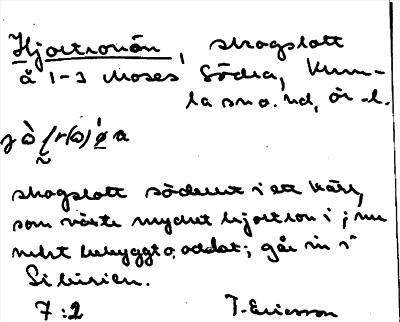 Hjortronön, skogslott
å 1-3 Moses Södra, Kum-
la sn o. hd, ör. l.
skogslott söderut i ett kärr,
som växte mycket hjortron i; nu
mest bebyggt o. odlat; går in i
Sibirien.
7:2 T. Ericsson